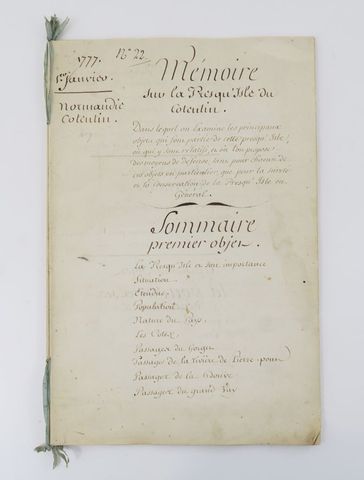 1777.
Nº 22
1er Janvier.
Normandie
Cotentin.
Mémoire
Sur la Presqu'Isle du
Cotentin.
Dans lequel on Examine les principaux
objets qui font partie de cette presqu'Isle,
ou qui y sont relatifs, et où l'on propose
des moyens de defense, tant pour chacun de
ces objets en particulier, que pour la sureté
et la conservation de la Presqu'Isle en
Général.
Sommaire
premier objet.
La Presqu'Isle et son importance
Situation
Etendue
Population
Nature du Pays.
Les Cotes
Passages du Gorget
Passage de la rivière de Pierre-pont
Passages de la Douve
Passages du grand Vay